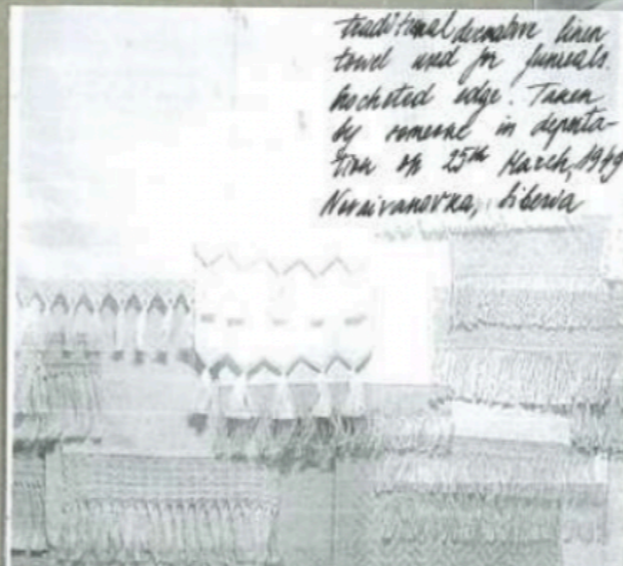 traditional decorative linen
towel used for funerals.
Crocheted edge. Taken
by someone in deporta-
tion on 25th March, 1949
Novaivanovka, Siberia